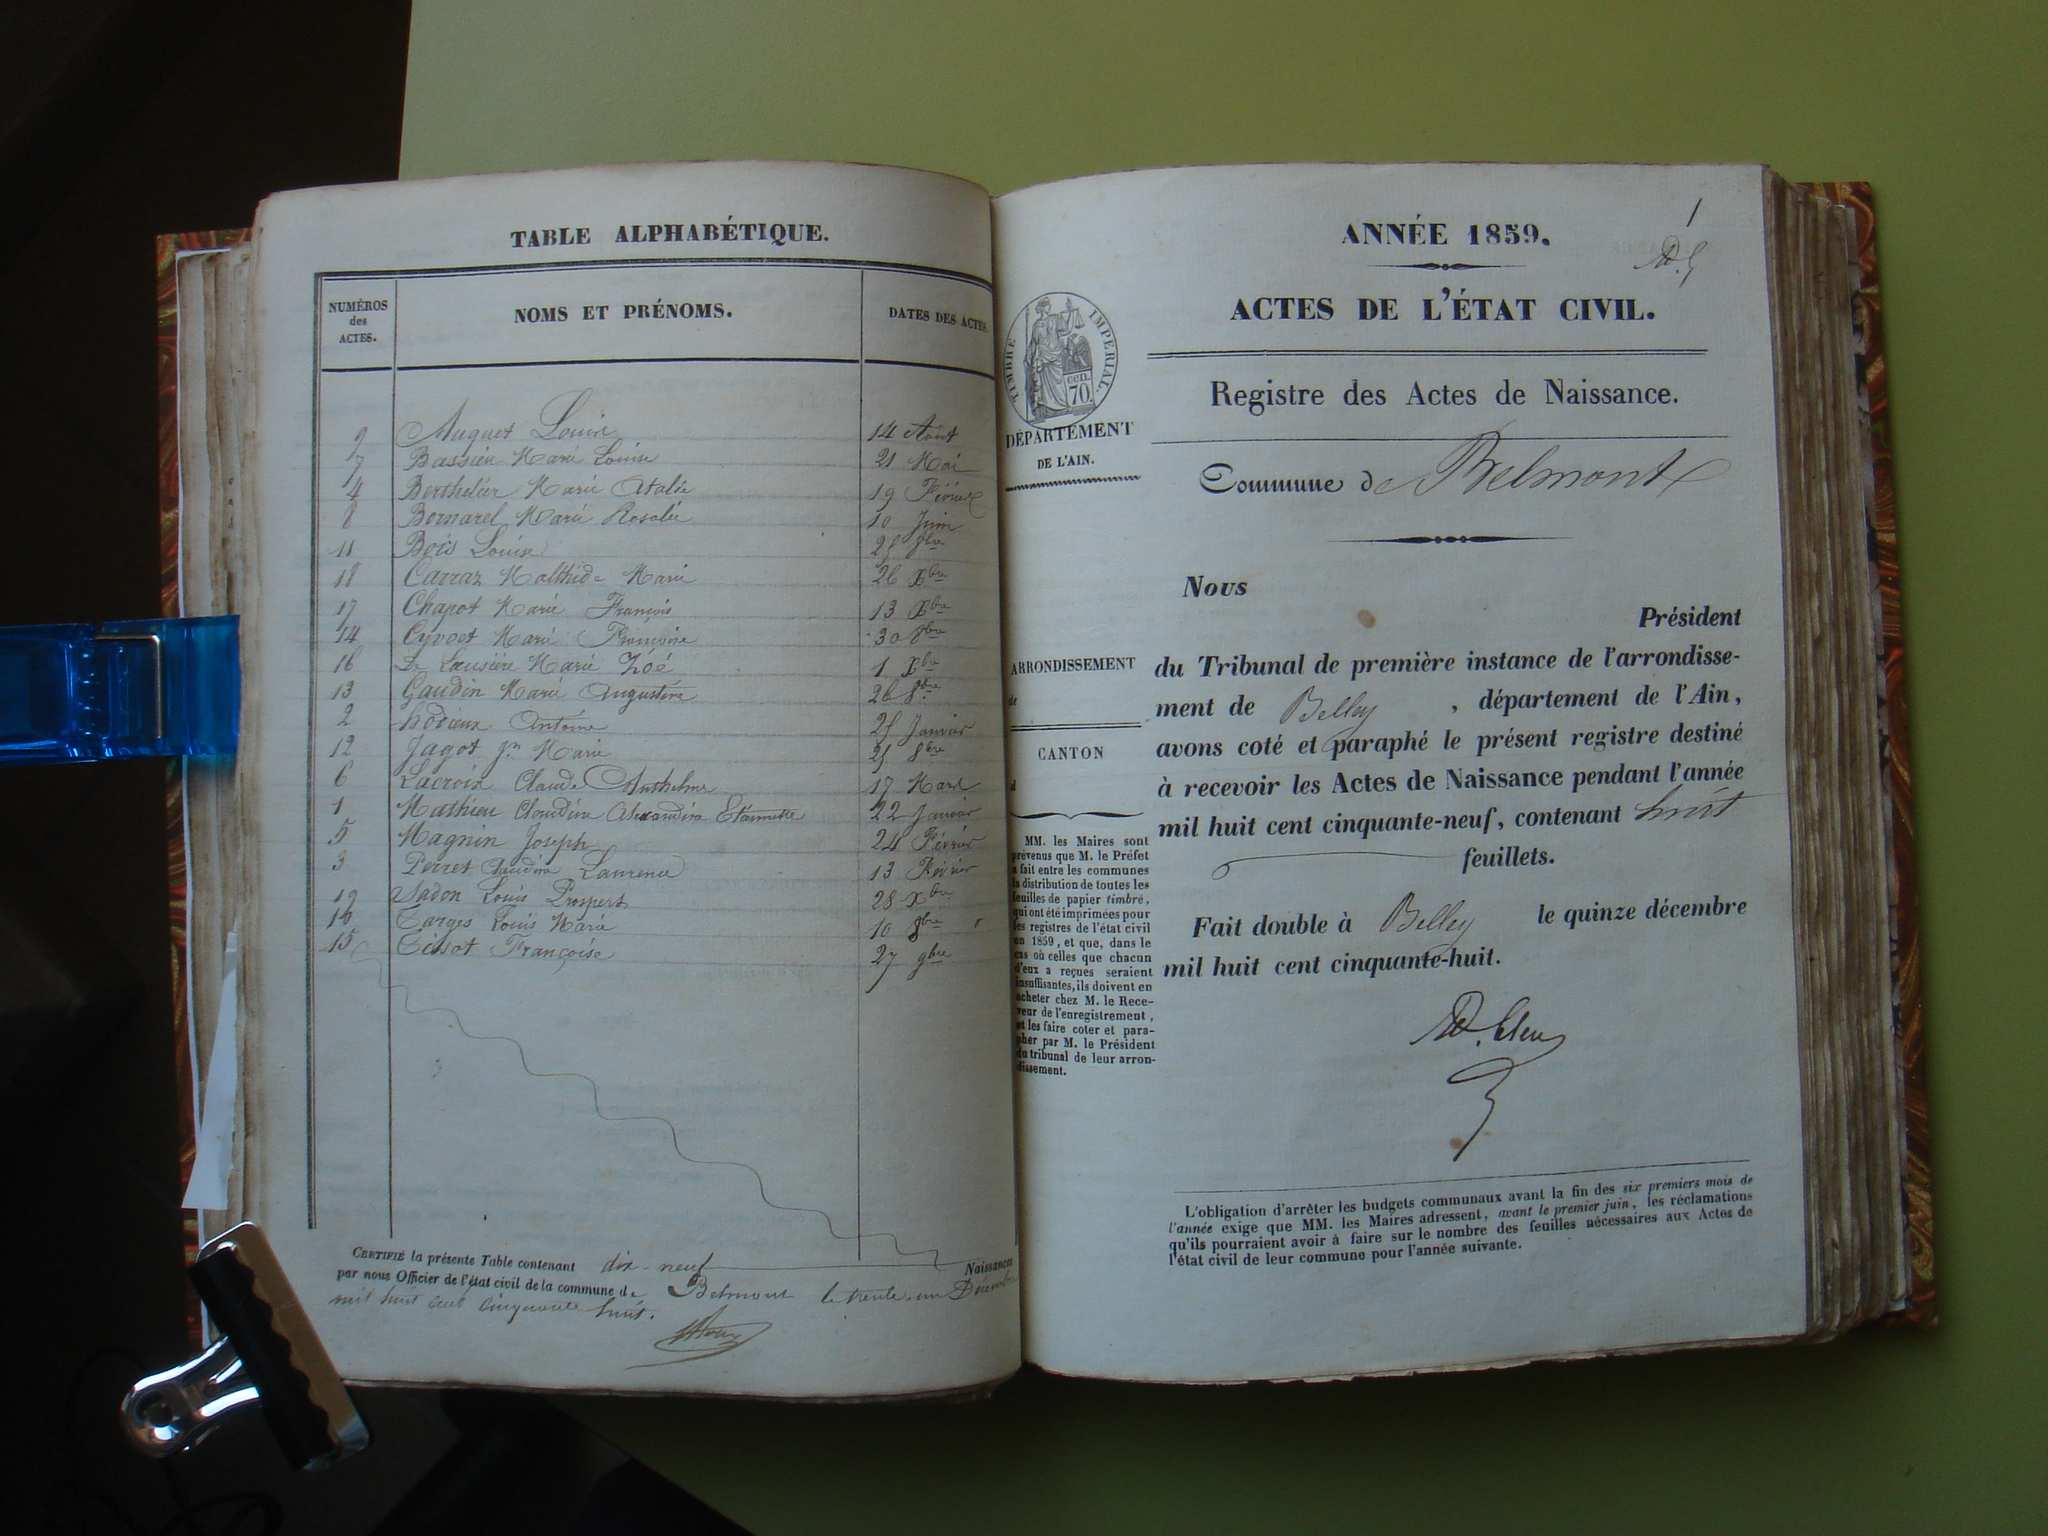 TABLE ALPHABÉTIQUE.
NUMÉROS des ACTES.
NOMS ET PRÉNOMS.
DATES DES ACTES.
9 Auguet Louise 14 Août
7 Bassieu Marie Louise 21 Mai
4 Berthelier Marie Atalie 19 Février
8 Bornarel Marie Rosalie 10 Juin
11 Bois Louise
18 Carraz Malthide Marie 26 Xbre
17 Chapot Marie François 13 Xbre
14 Cyvoct Marie Françoise 30 8bre
16 Marie Zóé 1 Xbre
13 Gaudin Marie Augustine 26 8bre
2 Antoine 25 Janvier
12 Jagot Jn Marie 25 8bre
6 Lacroix Claude Anthelme 17 Mars
1 Mathieu Claudine Alexandrine Etiennette 22 Janvier
5 Magnin Joseph 24 Février
3 Perret Claudine Laurence 13 Février
19 Sadon Louis Prospert 28 Xbre
10 Targes Louis Marie 10 8bre
15 Tissot Françoise 27 9bre
CERTIFIÉ la présente Table contenant dix-neuf Naissances
par nous Officier de l'état civil de la commune de Belmont le trente-un Décembre
mil huit cent cinquante huit.
1
ANNÉE 1859.
ACTES DE L'ÉTAT CIVIL.
TIMBRE IMPÉRIAL.
CEN. 70.
Registre des Actes de Naissance.
DÉPARTEMENT
DE L'AIN.
Commune de Belmont
Nous
Président
ARRONDISSEMENT
de
CANTON
d
du Tribunal de première instance de l'arrondisse-
ment de Belley, département de l'Ain,
avons coté et paraphé le présent registre destiné
à recevoir les Actes de Naissance pendant l'année
mil huit cent cinquante-neuf, contenant huit
feuillets.
Fait double à Belley le quinze décembre
mil huit cent cinquante-huit.
MM. les Maires sont
prévenus que M. le Préfet
a fait entre les communes
la distribution de toutes les
feuilles de papier timbré,
qui ont été imprimées pour
les registres de l'état civil
en 1859, et que, dans le
cas où celles que chacun
d'eux a reçues seraient
insuffisantes, ils doivent en
acheter chez M. le Rece-
veur de l'enregistrement,
et les faire coter et para-
pher par M. le Président
du tribunal de leur arron-
dissement.
L'obligation d'arrêter les budgets communaux avant la fin des six premiers mois de
l'année exige que MM. les Maires adressent, avant le premier juin, les réclamations
qu'ils pourraient avoir à faire sur le nombre des feuilles nécessaires aux Actes de
l'état civil de leur commune pour l'année suivante.